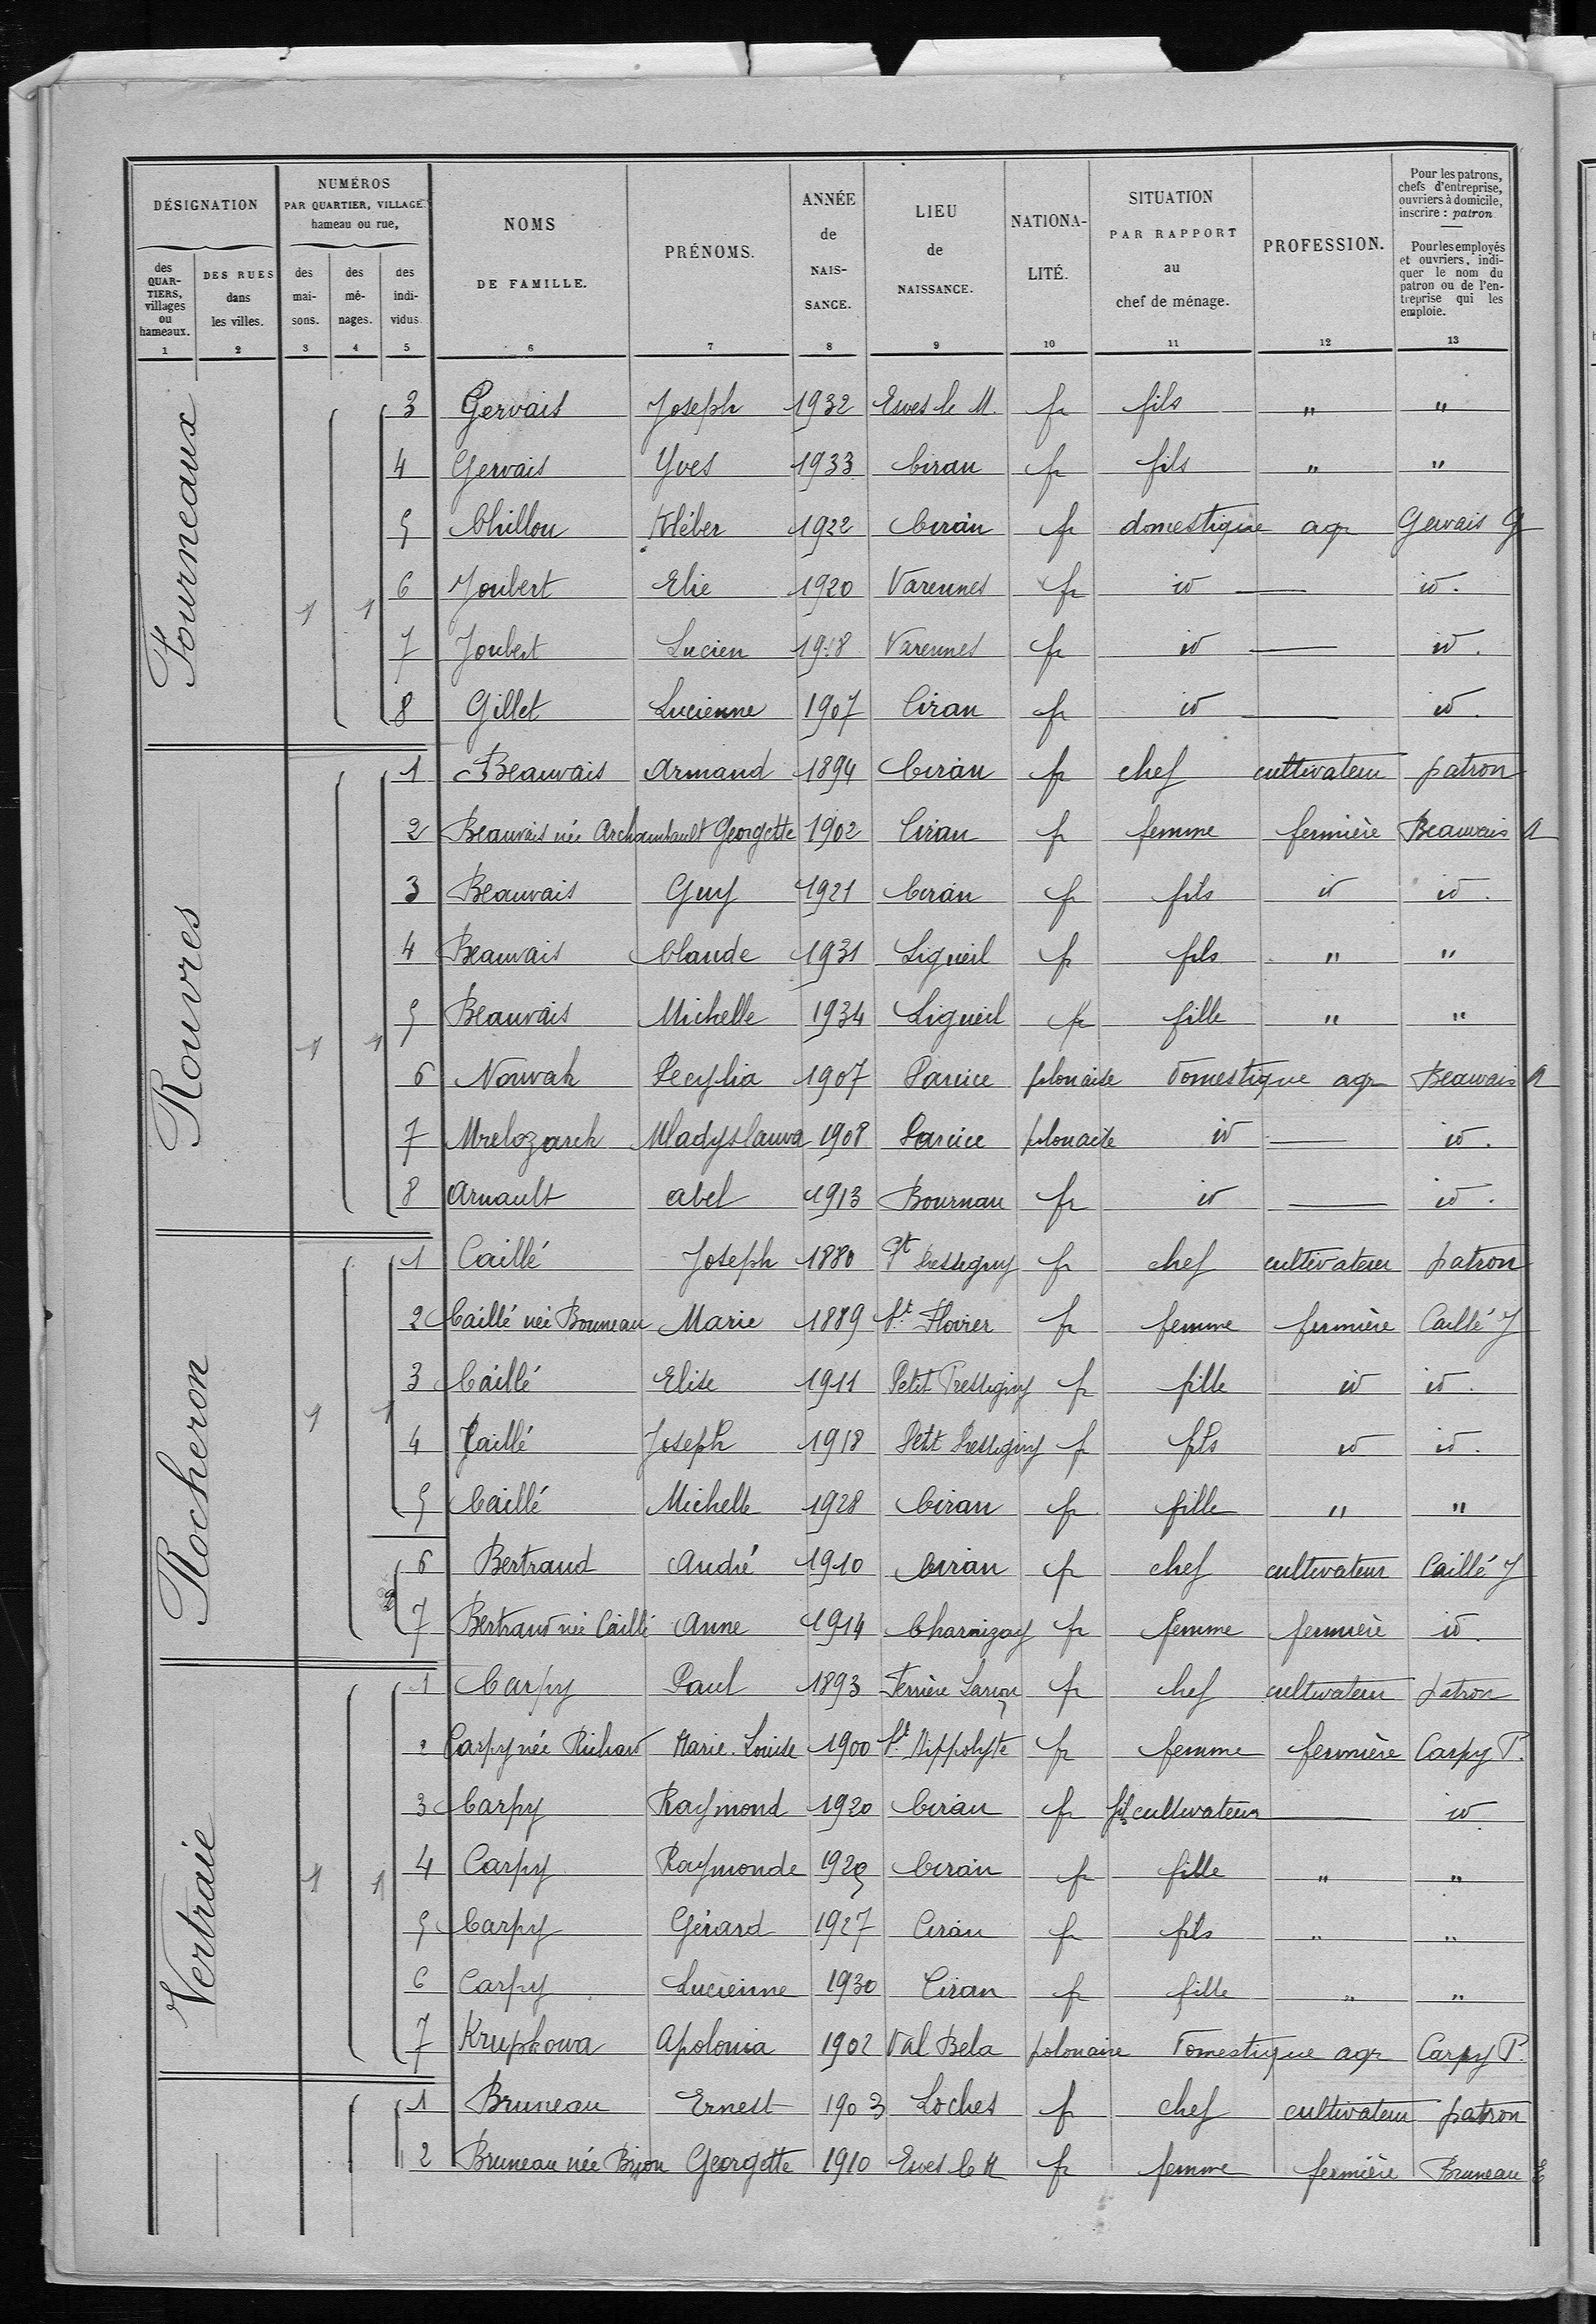 DÉSIGNATION
NUMÉROS
PAR QUARTIER, VILLAGE
hameau ou rue,
des QUARTIERS, villages ou hameaux.
DES RUES dans les villes.
des maisons.
des ménages.
des individus
NOMS DE FAMILLE.
PRÉNOMS.
ANNÉE de NAISSANCE.
LIEU de NAISSANCE.
NATIONALITÉ.
SITUATION PAR RAPPORT au chef de ménage.
PROFESSION.
Pour les patrons, chefs d'entreprise, ouvriers à domicile, inscrire : patron
Pour les employés et ouvriers, indiquer le nom du patron ou de l'entreprise qui les emploie.
1 2 3 4 5 6 7 8 9 10 11 12 13
Fourneaux 1 1
3 Gervais Joseph 1932 Esves le M. fr fils " "
4 Gervais Yves 1933 Ciran fr fils " "
5 Chillou Kléber 1922 Ciran fr domestique agr Gervais G
6 Joubert Elie 1920 Varennes fr id — id.
7 Joubert Lucien 1918 Varennes fr id — id.
8 Gillet Lucienne 1907 Ciran fr id — id.
Rouvres 1 1
1 Beauvais Armand 1894 Ciran fr chef cultivateur patron
2 Beauvais née Archambault Georgette 1902 Ciran fr femme fermière Beauvais A
3 Beauvais Guy 1921 Ciran fr fils id id.
4 Beauvais Claude 1931 Ligueil fr fils " "
5 Beauvais Michelle 1934 Ligueil fr fille " "
6 Nowak 1907 polonaise domestique agr Beauvais A
7 1908 polonaise id — id.
8 Arnault Abel 1913 Bournan fr id — id.
Rocheron 1 1
1 Caillé Joseph 1880 Pt Pressigny fr chef cultivateur patron
2 Caillé née Bonneau Marie 1889 St Flovier fr femme fermière Caillé J
3 Caillé Elise 1911 Petit Pressigny fr fille id id.
4 Caillé Joseph 1918 Petit Pressigny fr fils id id.
5 Caillé Michelle 1928 Ciran fr fille " "
2
6 Bertrand André 1910 Ciran fr chef cultivateur Caillé J
7 Bertrand née Caillé Anne 1914 Charnizay fr femme fermière id.
Vertraie 1 1
1 Carpy Paul 1893 Ferrière Larçon fr chef cultivateur patron
2 Carpy née Richard Marie-Louise 1900 St Hippolyte fr femme fermière Carpy P.
3 Carpy Raymond 1920 Ciran fr fils cultivateur — id
4 Carpy Raymonde Ciran fr fille " "
5 Carpy Gérard 1927 Ciran fr fils " "
6 Carpy Lucienne 1930 Ciran fr fille " "
7 Krupkowa Apolonia 1902 Val Bela polonaise domestique agr Carpy P.
1 Bruneau Ernest 1903 Loches fr chef cultivateur patron
2 Bruneau née Georgette 1910 Esves le M fr femme fermière Bruneau E